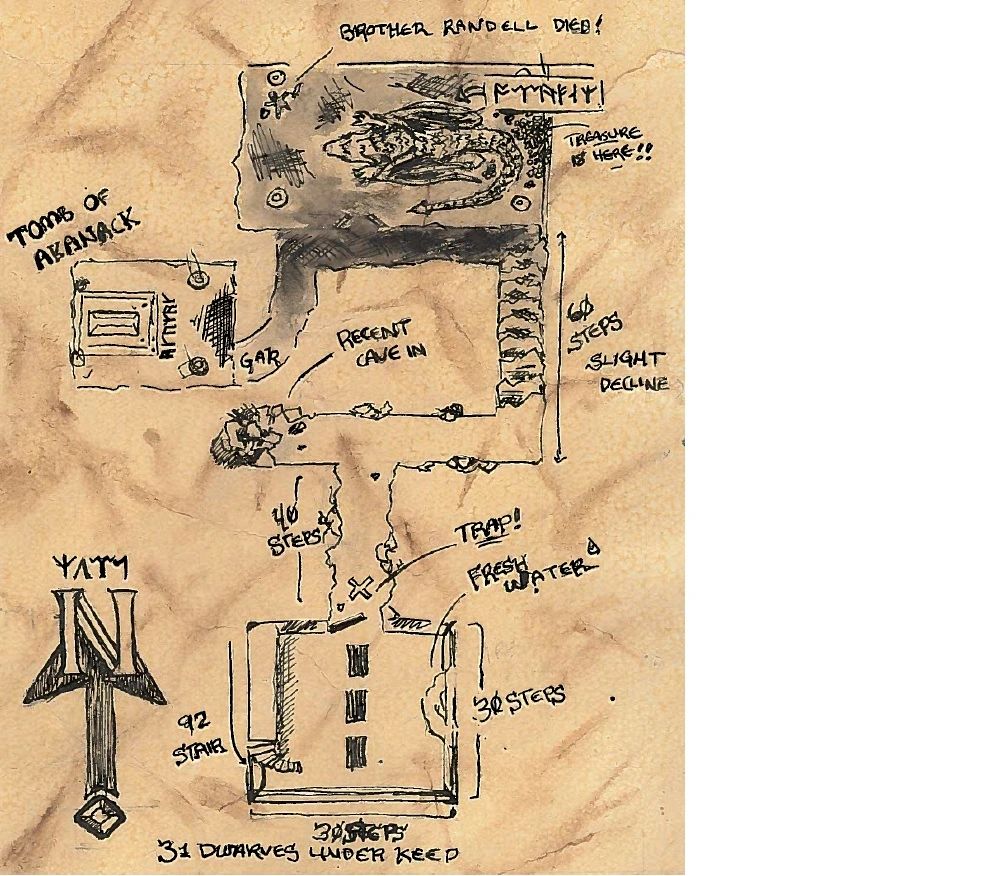 BROTHER RANDELL DIED!
TREASURE
IS HERE!!
TOMB OF
AKANACK
GAR
RECENT
CAVE IN
60
STEPS
SLIGHT
DECLINE
40
STEPS
TRAP!
FRESH
WATER
N
92
STAIR
30 STEPS
30 STEPS
31 DWARVES UNDER KEEP